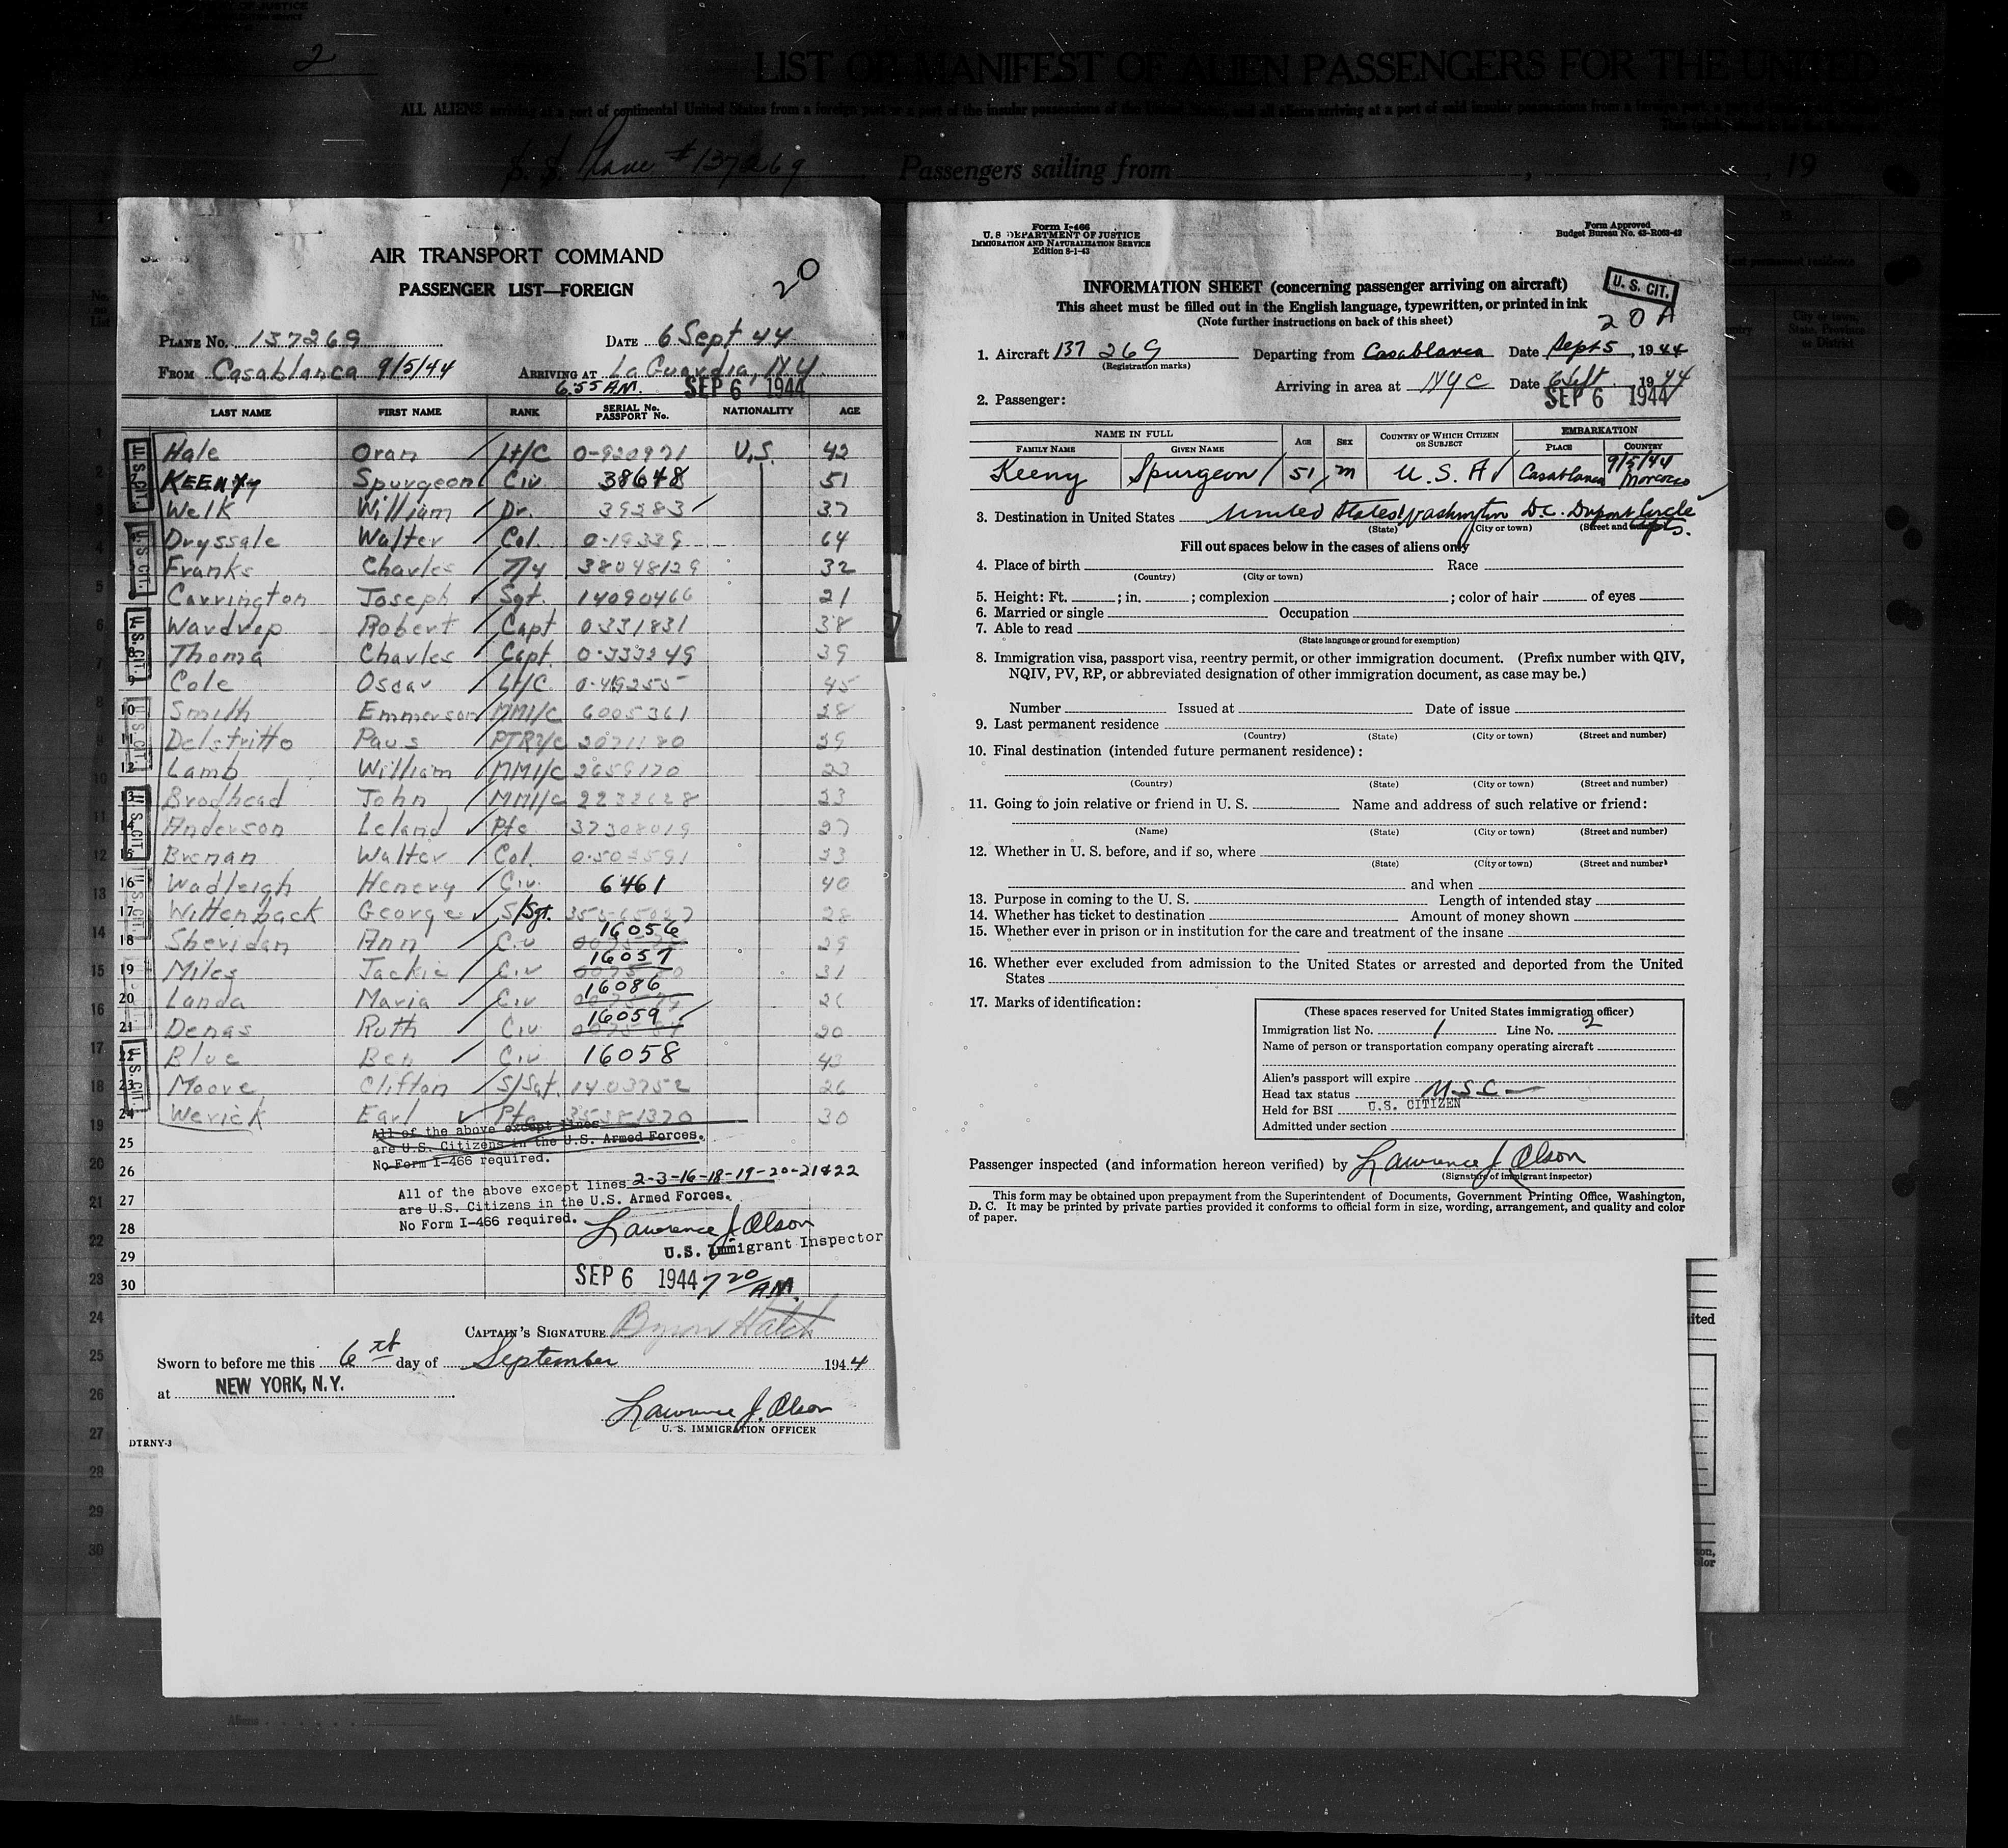 2
LIST OR MANIFEST OF ALIEN PASSENGERS FOR THE UNITED
ALL ALIENS arriving at a port of continental United States from a foreign port or a port of the insular possessions of the United States, and all aliens arriving at a port of said insular possessions from a foreign port
S. S. Plane #137269 Passengers sailing from , , 19
AIR TRANSPORT COMMAND
PASSENGER LIST—FOREIGN
20
PLANE No. 137269 DATE 6 Sept 44
FROM Casablanca 9/5/44 ARRIVING AT La Guardia, N.Y.
6:55 AM. SEP 6 1944
LAST NAME FIRST NAME RANK SERIAL No. PASSPORT No. NATIONALITY AGE
Hale Oran Lt/C 0-920971 U.S. 42
KEENY Spurgeon Civ 38648 51
Welk William Dr. 39283 37
Dryssale Walter Col. 0-19339 64
Franks Charles T/4 38048129 32
Carrington Joseph Sgt. 14090466 21
Wardrep Robert Capt 0331831 38
Thoma Charles Capt. 0-333249 39
9 Cole Oscar Lt/C 0-419255 45
10 Smith Emmerson MM1/C 6005361 28
11 Delstritto Paus PTR3/c 2071180 29
12 Lamb William MM1/C 2659170 23
13 Brodhead John MM1/c 2232628 23
14 Anderson Leland Pfc 37308019 27
15 Brenan Walter Col. 0-505591 53
16 Wadleigh Henery Civ 6461 40
17 Wittenback George S/Sgt. 28
18 Sheridan Ann Civ 16056 29
19 Miles Jackie Civ 16057 31
20 Landa Maria Civ 16086 26
21 Denas Ruth Civ 16059 20
22 Blue Ben Civ 16058 43
23 Moore Clifton S/Sgt. 1403752 26
24 Werick Earl Pfc 35381370 30
All of the above except lines
are U.S. Citizens in the U.S. Armed Forces.
No Form I-466 required.
25
26
27
28
29
30
All of the above except lines 2-3-16-18-19-20-21&22
are U.S. Citizens in the U.S. Armed Forces.
No Form I-466 required.
Lawrence J. Olson
U.S. Immigrant Inspector
SEP 6 1944 7 20/AM.
CAPTAIN'S SIGNATURE Byron Hatch
Sworn to before me this 6th day of September 1944
at NEW YORK, N.Y.
Lawrence J. Olson
U. S. IMMIGRATION OFFICER
DTRNY-3
Form I-466
U. S DEPARTMENT OF JUSTICE
IMMIGRATION AND NATURALIZATION SERVICE
Edition 8-1-43
Form Approved
Budget Bureau No. 43-R063-42
INFORMATION SHEET (concerning passenger arriving on aircraft)
U. S. CIT.
This sheet must be filled out in the English language, typewritten, or printed in ink
(Note further instructions on back of this sheet)
20 A
1. Aircraft 137 269 Departing from Casablanca Date Sept 5, 1944
(Registration marks)
Arriving in area at NYC Date 6 Sept 1944
SEP 6 1944
2. Passenger:
NAME IN FULL AGE SEX COUNTRY OF WHICH CITIZEN OR SUBJECT EMBARKATION
FAMILY NAME GIVEN NAME PLACE COUNTRY
Keeny Spurgeon 51 m U. S. A Casablanca 9/5/44 Morocco
3. Destination in United States United States Washington D.C. Dupont Circle Apts.
(State) (City or town) (Street and number)
Fill out spaces below in the cases of aliens only
4. Place of birth Race
(Country) (City or town)
5. Height: Ft. ; in. ; complexion ; color of hair of eyes
6. Married or single Occupation
7. Able to read
(State language or ground for exemption)
8. Immigration visa, passport visa, reentry permit, or other immigration document. (Prefix number with QIV,
NQIV, PV, RP, or abbreviated designation of other immigration document, as case may be.)
Number Issued at Date of issue
9. Last permanent residence
(Country) (State) (City or town) (Street and number)
10. Final destination (intended future permanent residence):
(Country) (State) (City or town) (Street and number)
11. Going to join relative or friend in U. S. Name and address of such relative or friend:
(Name) (State) (City or town) (Street and number)
12. Whether in U. S. before, and if so, where
(State) (City or town) (Street and number)
and when
13. Purpose in coming to the U. S. Length of intended stay
14. Whether has ticket to destination Amount of money shown
15. Whether ever in prison or in institution for the care and treatment of the insane
16. Whether ever excluded from admission to the United States or arrested and deported from the United
States
17. Marks of identification:
(These spaces reserved for United States immigration officer)
Immigration list No. 1 Line No. 2
Name of person or transportation company operating aircraft
Alien's passport will expire
Head tax status U.S.C—
Held for BSI U.S. CITIZEN
Admitted under section
Passenger inspected (and information hereon verified) by Lawrence J Olson
(Signature of immigrant inspector)
This form may be obtained upon prepayment from the Superintendent of Documents, Government Printing Office, Washington,
D. C. It may be printed by private parties provided it conforms to official form in size, wording, arrangement, and quality and color
of paper.